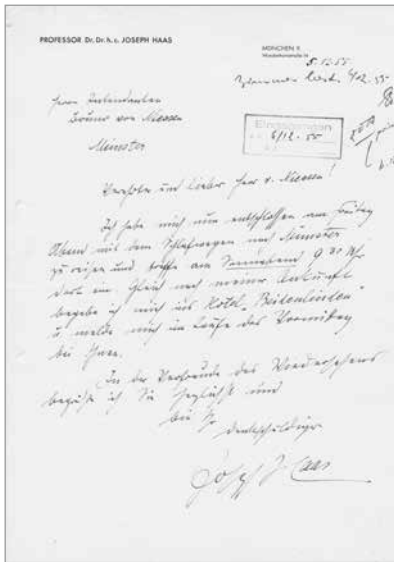 PROFESSOR Dr. Dr. h. c. JOSEPH HAAS
MÜNCHEN 9,
5.12.55
Herrn Intendanten
Bruno von Niessen
Münster
6/12.55
Verehrter und lieber Herr v. Niessen!
Ich habe mich nun entschlossen am Freitag
Abend mit dem Schlafwagen nach Münster
zu reisen und treffe am Sonnabend 9 Uhr
dort ein. Gleich nach meiner Ankunft
begebe ich mich ins Hotel
u. melde mich im Laufe des Vormittag
bei Ihnen.
In der Vorfreude des Wiedersehens
begrüße ich Sie herzlichst und
bin Ihr
Joseph Haas